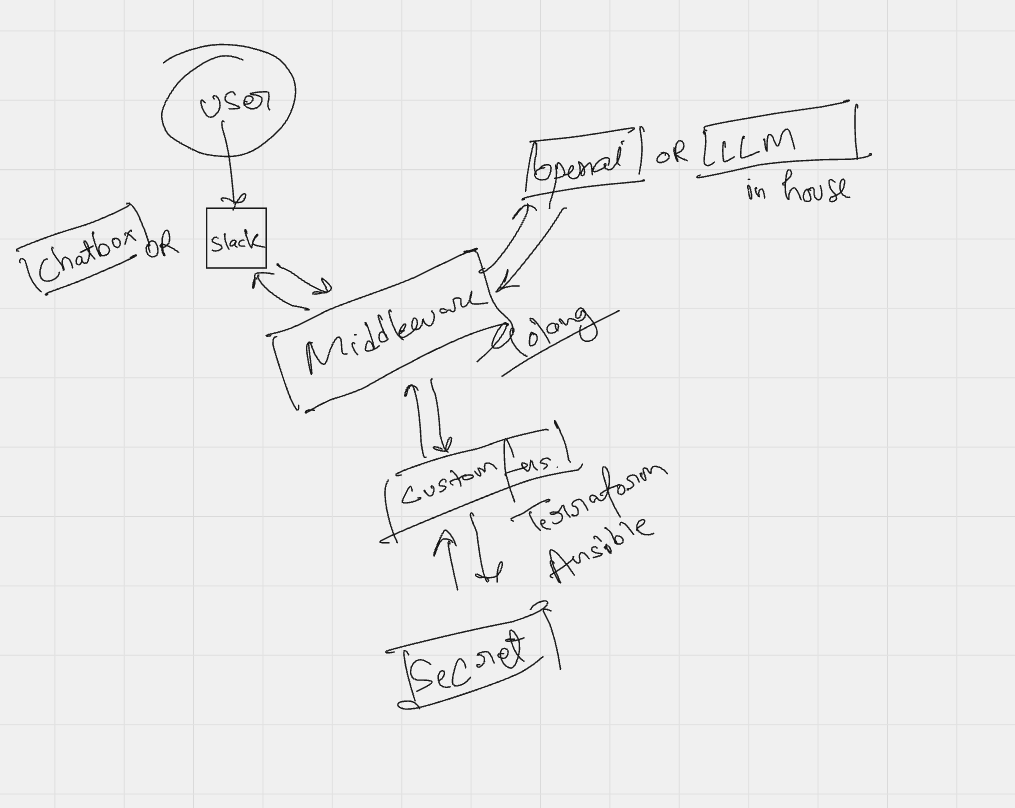 User
Chatbox OR Slack
Openai OR LLM
in house
Middleware
Golang
Custom fns.
Terraform
Ansible
Secret